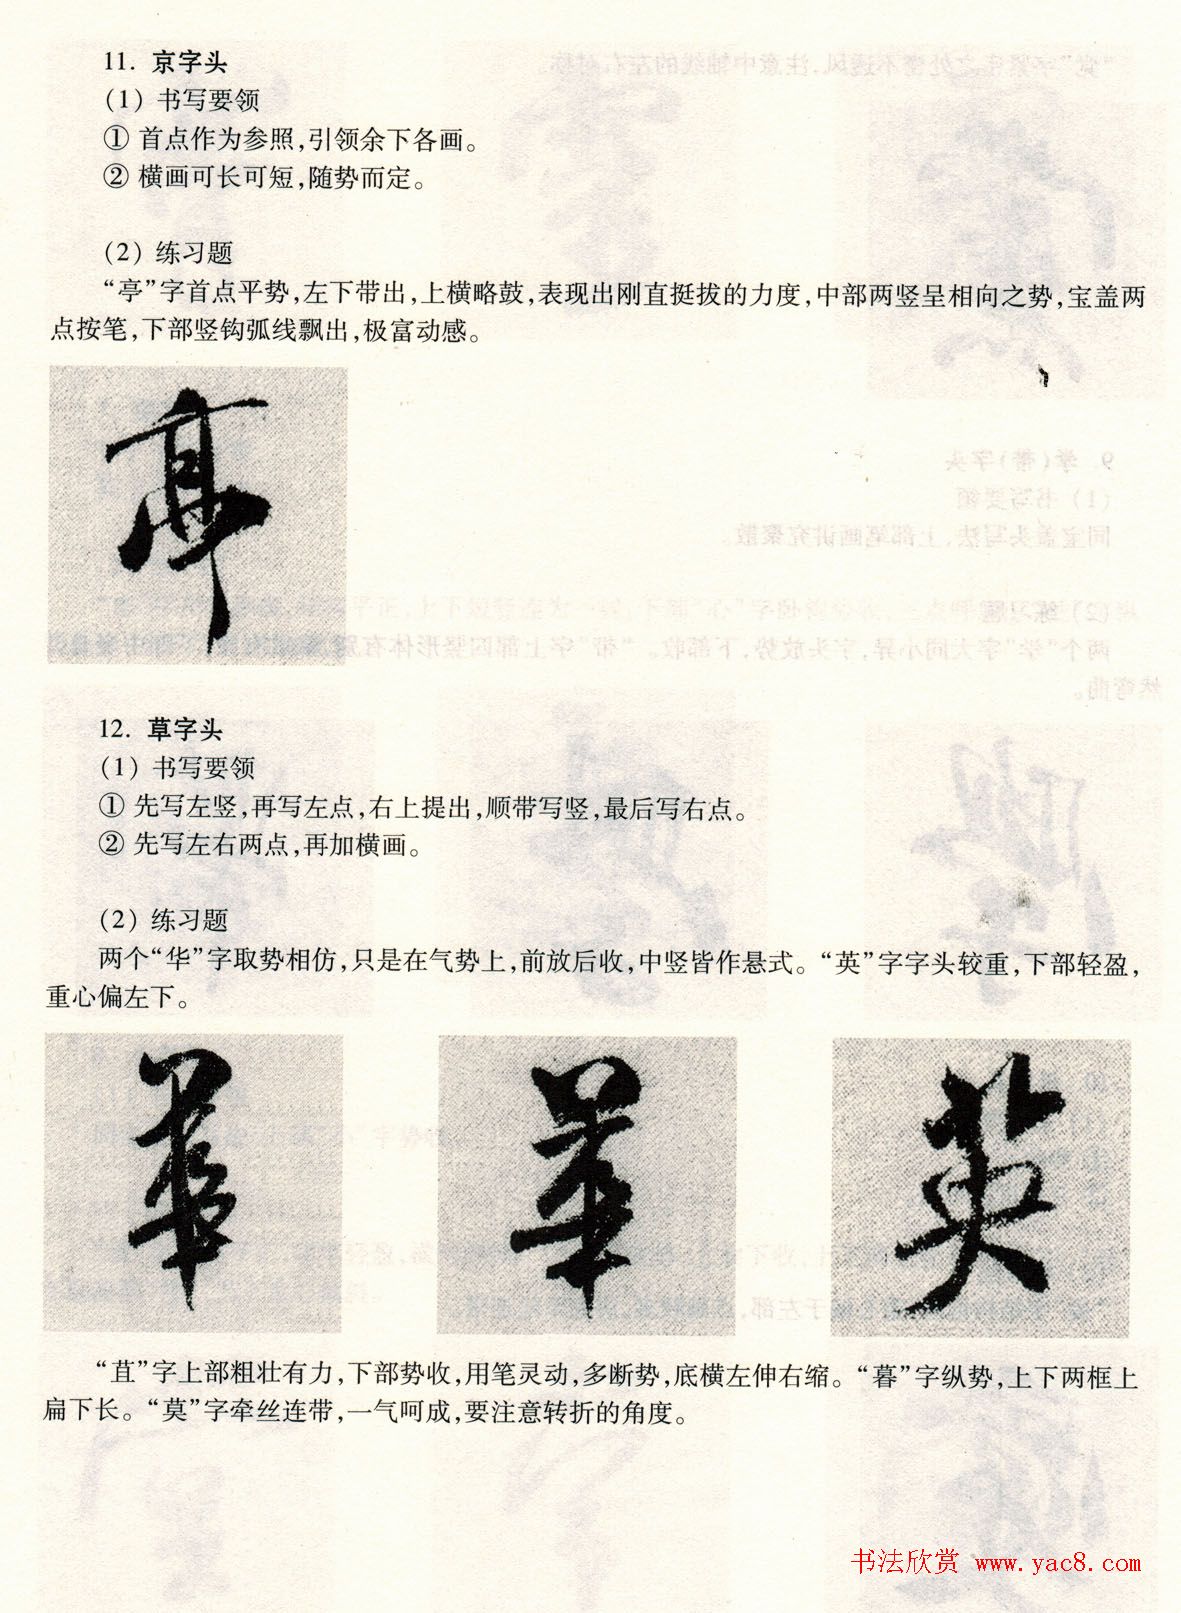 11. 京字头
(1) 书写要领
① 首点作为参照,引领余下各画。
② 横画可长可短,随势而定。
(2) 练习题
“亭”字首点平势,左下带出,上横略鼓,表现出刚直挺拔的力度,中部两竖呈相向之势,宝盖两
点按笔,下部竖钩弧线飘出,极富动感。
亭
12. 草字头
(1) 书写要领
① 先写左竖,再写左点,右上提出,顺带写竖,最后写右点。
② 先写左右两点,再加横画。
(2) 练习题
两个“华”字取势相仿,只是在气势上,前放后收,中竖皆作悬式。“英”字字头较重,下部轻盈,
重心偏左下。
華 華 英
“苴”字上部粗壮有力,下部势收,用笔灵动,多断势,底横左伸右缩。“暮”字纵势,上下两框上
扁下长。“莫”字牵丝连带,一气呵成,要注意转折的角度。
书法欣赏 www.yac8.com